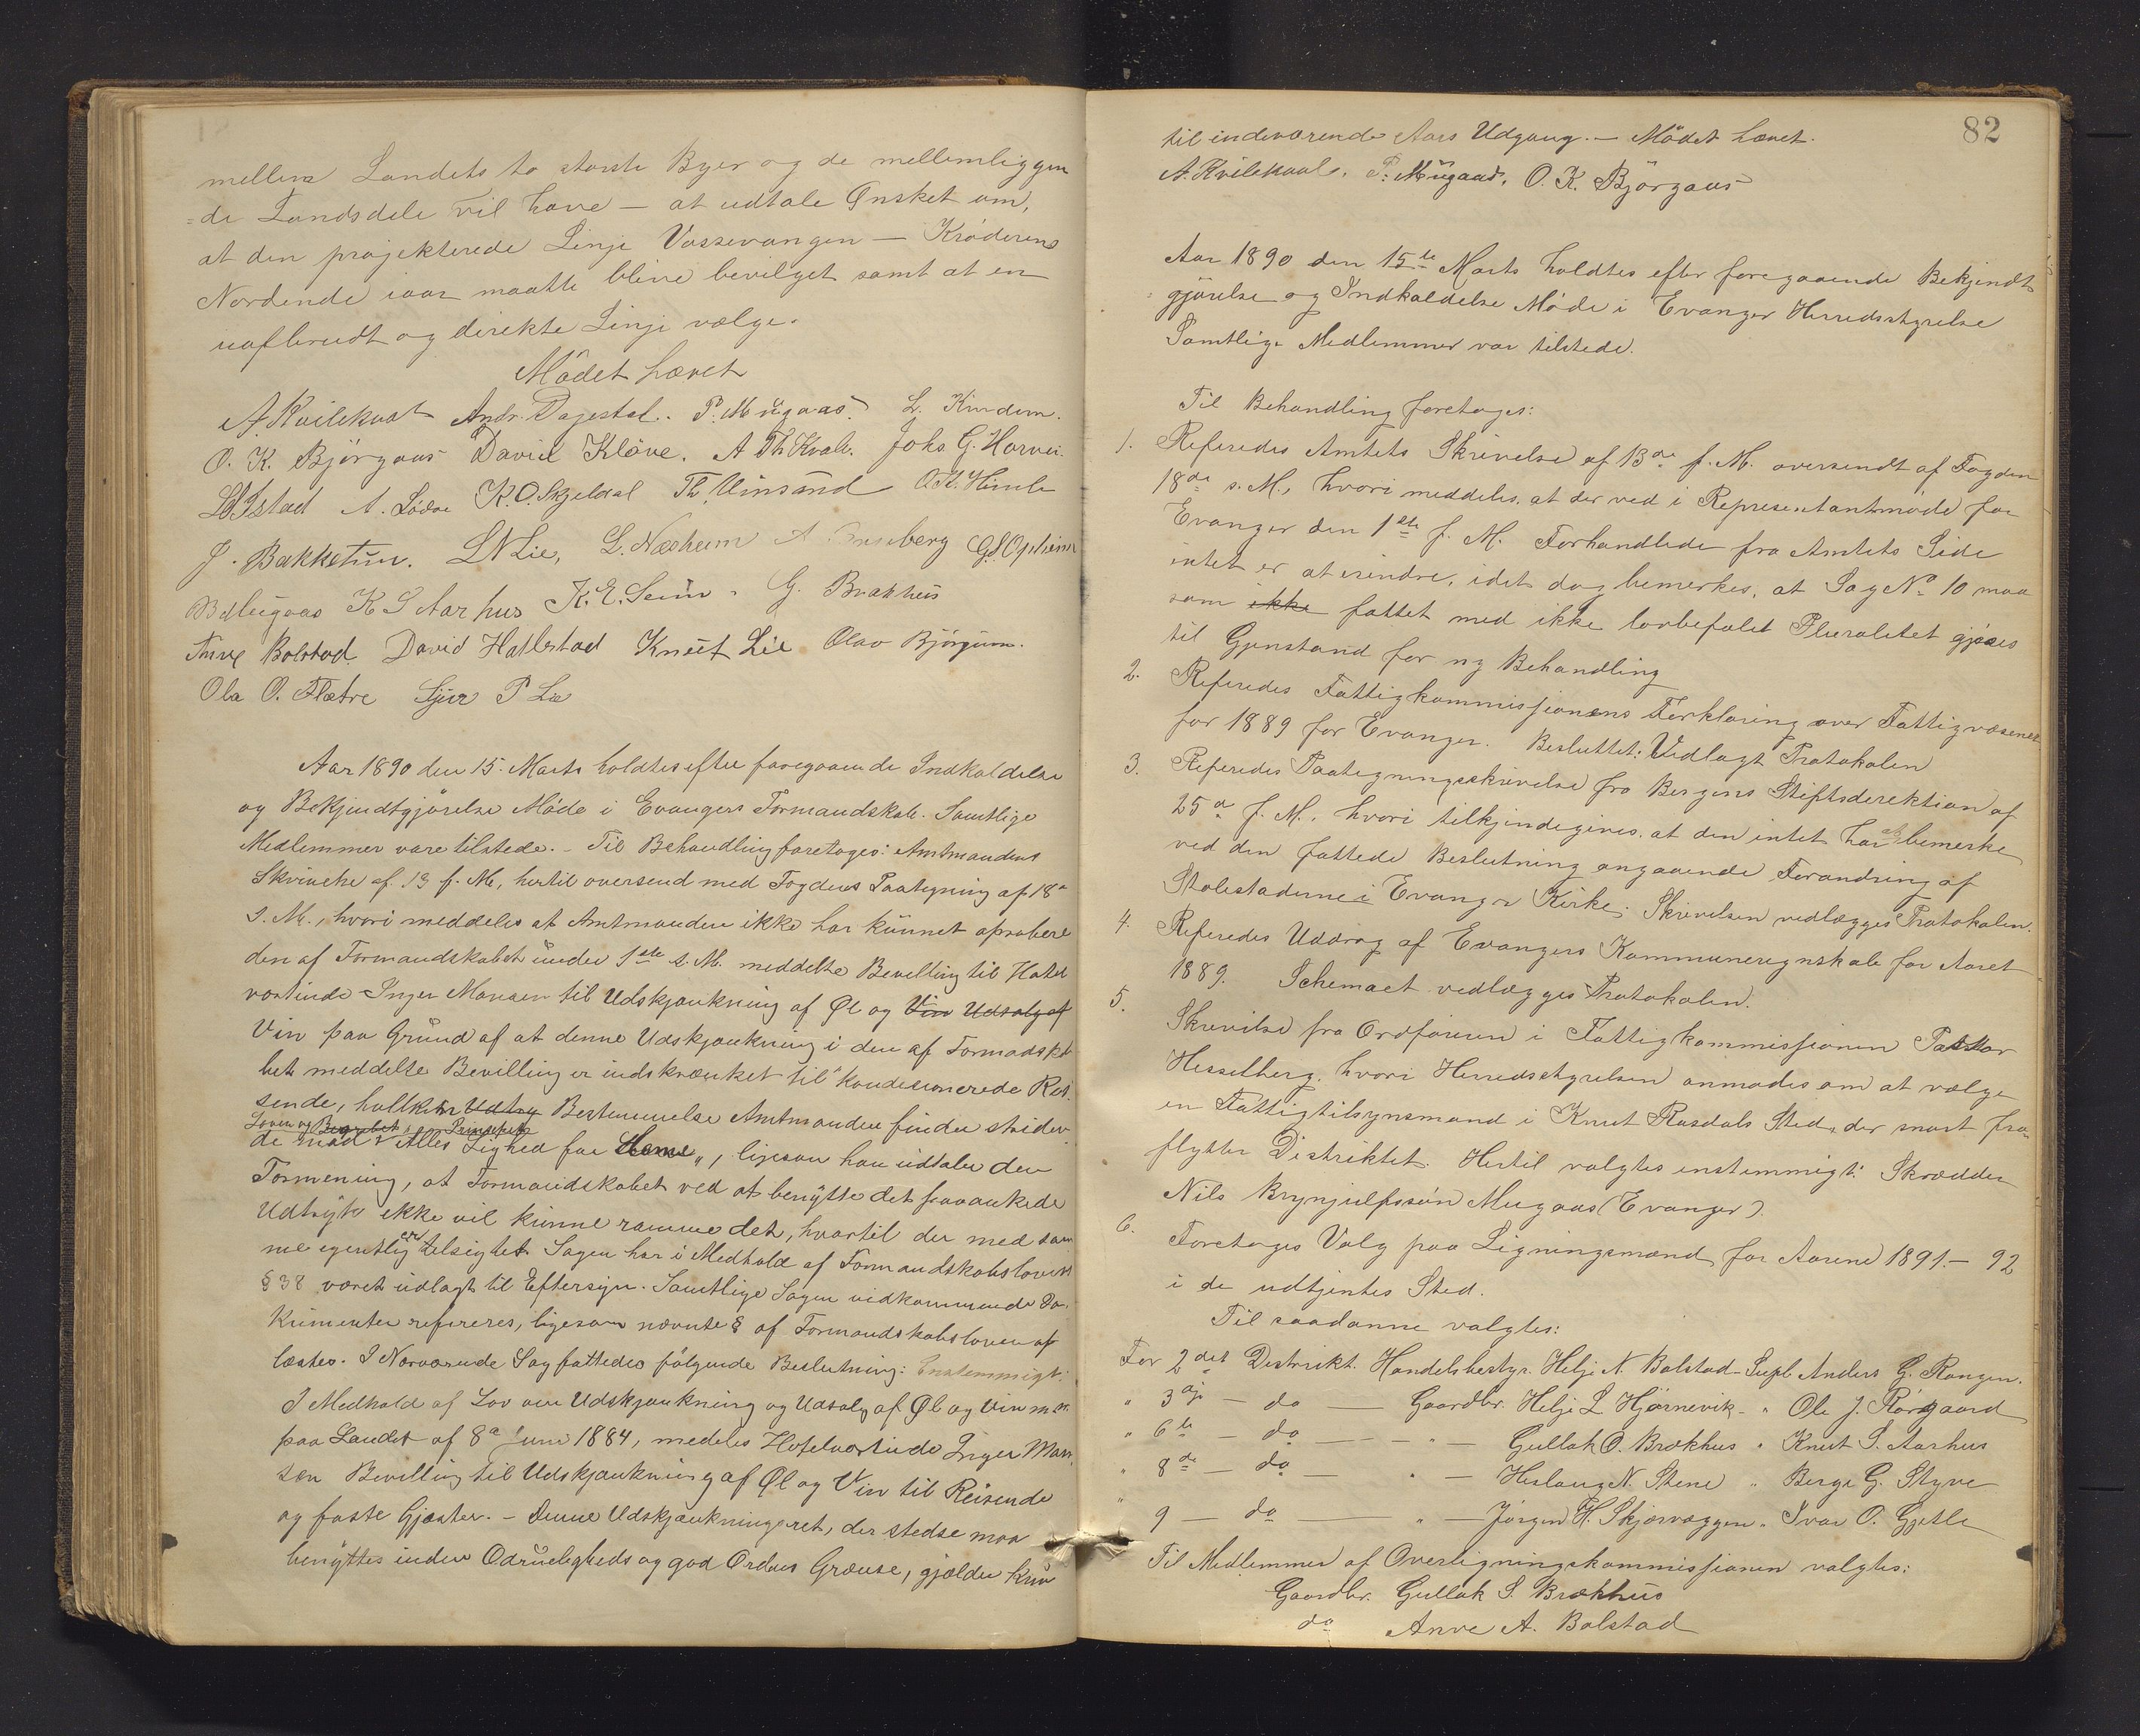 mellem Landets to störste Byer og de mellemliggen
=de Landsdele vil have — at udtale Ønsket om,
at den projekterede Linje Vossevangen — Kröderens
Nordende iaar maatte blive bevilget samt at en
uafbrudt og direkte Linje vælges.
Mödet hævet
A. Kvilekval Andr. Dagestad. P. Mügaas. L. Kinden.
O. K. Björgaas David Klöve. A Th Kvale. Johs. G. Horvei.
Istad N. Lödve K. O. Skjeldal Th. Vinsand O. K. Himle
J. Bakketun. L N Lie, L. Næsheim A berg G. S. Opheim
K S Aarhus K. E. Seim. G. Brakhus
Anve Bolstad David Hallestad Knut Lie Olav Björgum.
Ola O. Flatre Sjur P Lie
Aar 1890 den 15. Marts holdtes efter foregaaende Indkaldelse
og Bekjendtgjörelse Möde i Evangers Formandskab. Samtlige
Medlemmer vare tilstede. – Til Behandling foretoges: Amtmandens
Skrivelse af 13 f. M., hertil oversend med Fogdens Paategning af 18de
s. M., hvori meddeles at Amtmanden ikke har kunnet aprobere
den af Formandskabet under 1ste s. M. meddelte Bevilling til Hotel
vertinde Inger Monsen til Udskjænkning af Øl og Vin Udsalg af
Vin paa Grund af at denne Udskjænkning i den af Formadska
bet meddelte Bevilling er indskrænket til "kondesionerede Rei-
sende, hvilken Udtry Bestemmelse Amtmanden finder striden
Loven og Begrebet, Princippet
de mod "Alles Lighed for Loven", ligesom han udtaler den
Formening, at Formandskabet ved at benytte det paaankede
Udtryk ikke vil kunne ramme det, hvortil der med sam
me egentlig er tilsigtet. Sagen har i Medhold af Formandskabslovens
§ 38 været udlagt til Eftersyn. Samtlige Sagen vedkommende Do-
kumenter refereres, ligesom nævnte § af Formandskabsloven op
læstes. I Nærværende Sag fattedes fölgende Beslutning: Enstemmigt:
I Medhold af Lov om Udskjænkning og Udsalg af Øl og Vin m. m.
paa Landet af 8de Juni 1884, medeles Hotelvertinde Inger Mon-
sen Bevilling til Udskjænkning af Øl og Vin til Reisende
og faste Gjæster. – Denne Udskjænkningsret, der stedse maa
benyttes inden Ædrueligheds og god Ordens Grænse, gjælder kun
82
til indeværende Aars Udgang. — Mödet hævet.
A. Kvilekval. P. Mügaas. O. K. Björgaas
Aar 1890 den 15de Marts holdtes efter foregaaende Bekjendt
gjörelse og Indkaldelse Möde i Evanger Herredsstyrelse
Samtlige Medlemmer var tilstede.
Til Behandling foretoges:
1. Referedes Amtets Skrivelse af 13de f. M. oversendt af Fogden
18de s. M., hvori meddeles, at der ved i Representantmöde for
Evanger den 1ste f. M. Forhandlede fra Amtets Side
intet er at erindre, idet dog bemerkes, at Sag No 10 maa
som ikke fattet med ikke lovbefalet Pluralitet gjöres
til Gjenstand for ny Behandling
2. Referedes Fattigkommissionens Forklaring over Fattigvæsenet
for 1889 for Evanger. Besluttet: Vedlagt Protokolen
3. Referedes Paategningsskrivelse fra Bergens Stiftsdirektion af
25de f. M., hvori tilkjendegives, at den intet har at bemerke
ved den fattede Beslutning angaaende Forandring af
Stolestaderne i Evanger Kirke. Skrivelsen vedlægges Protokolen.
4. Referedes Uddrag af Evangers Kommuneregnskab for Aaret
1889. Schemaet vedlægges Protokolen.
5. Skrivelse fra Ordföreren i Fattigkommissionen Pastor
Hesselberg, hvori Herredsstyrelsen anmodes om at vælge
en Fattigtilsynsmand i Knut Rasdals Sted, der snart fra-
flytter Distriktet. Hertil valgtes enstemmigt: Skrædder
Nils Brynjulfssön Mugaas (Evanger).
6. Foretoges Valg paa Ligningsmænd for Aarene 1891 – 92
i de udtjentes Sted.
Til saadanne valgtes:
For 2det Distrikt. Handelsbestyr. Helje N. Bolstad Supl. Anders G. Rongen.
" 3die — do — Gaardbr. Helje L Hjörnevik " Ole J. Rörgaard
" 6te — do — " — Gullak O. Brækhus " Knut S. Aarhus
" 8de — do " — Herlaug N. Stene " Berge G. Styve
" 9 — do — " — Jörgen H. Skjærvæggen " Ivar O. Gjetle
Til Medlemmer af Overligningskommissionen valgtes:
Gaardbr. Gullak S. Brækhus
do Anve A. Bolstad